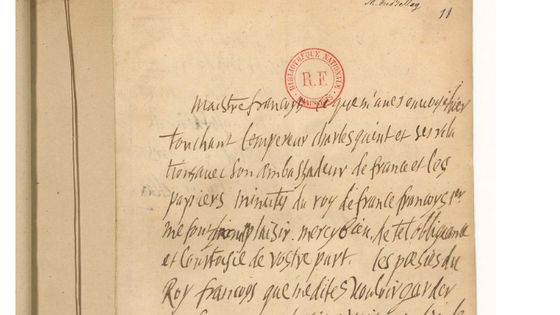 M. du Bellay
11
BIBLIOTHÈQUE NATIONALE
R.F.
MANUSCRITS
maistre francoys ce que m'aues enuoyé hier
touchant l'empereur charles quint et ses rela
tions auec son ambassadeur de france et les
papiers minuttés du roy de france francoys 1er
me font grand plaisir. mercy bien de tel obligeance
et Courtoisie de vostre part. les poesies du
Roy francoys que medites vouloir garder